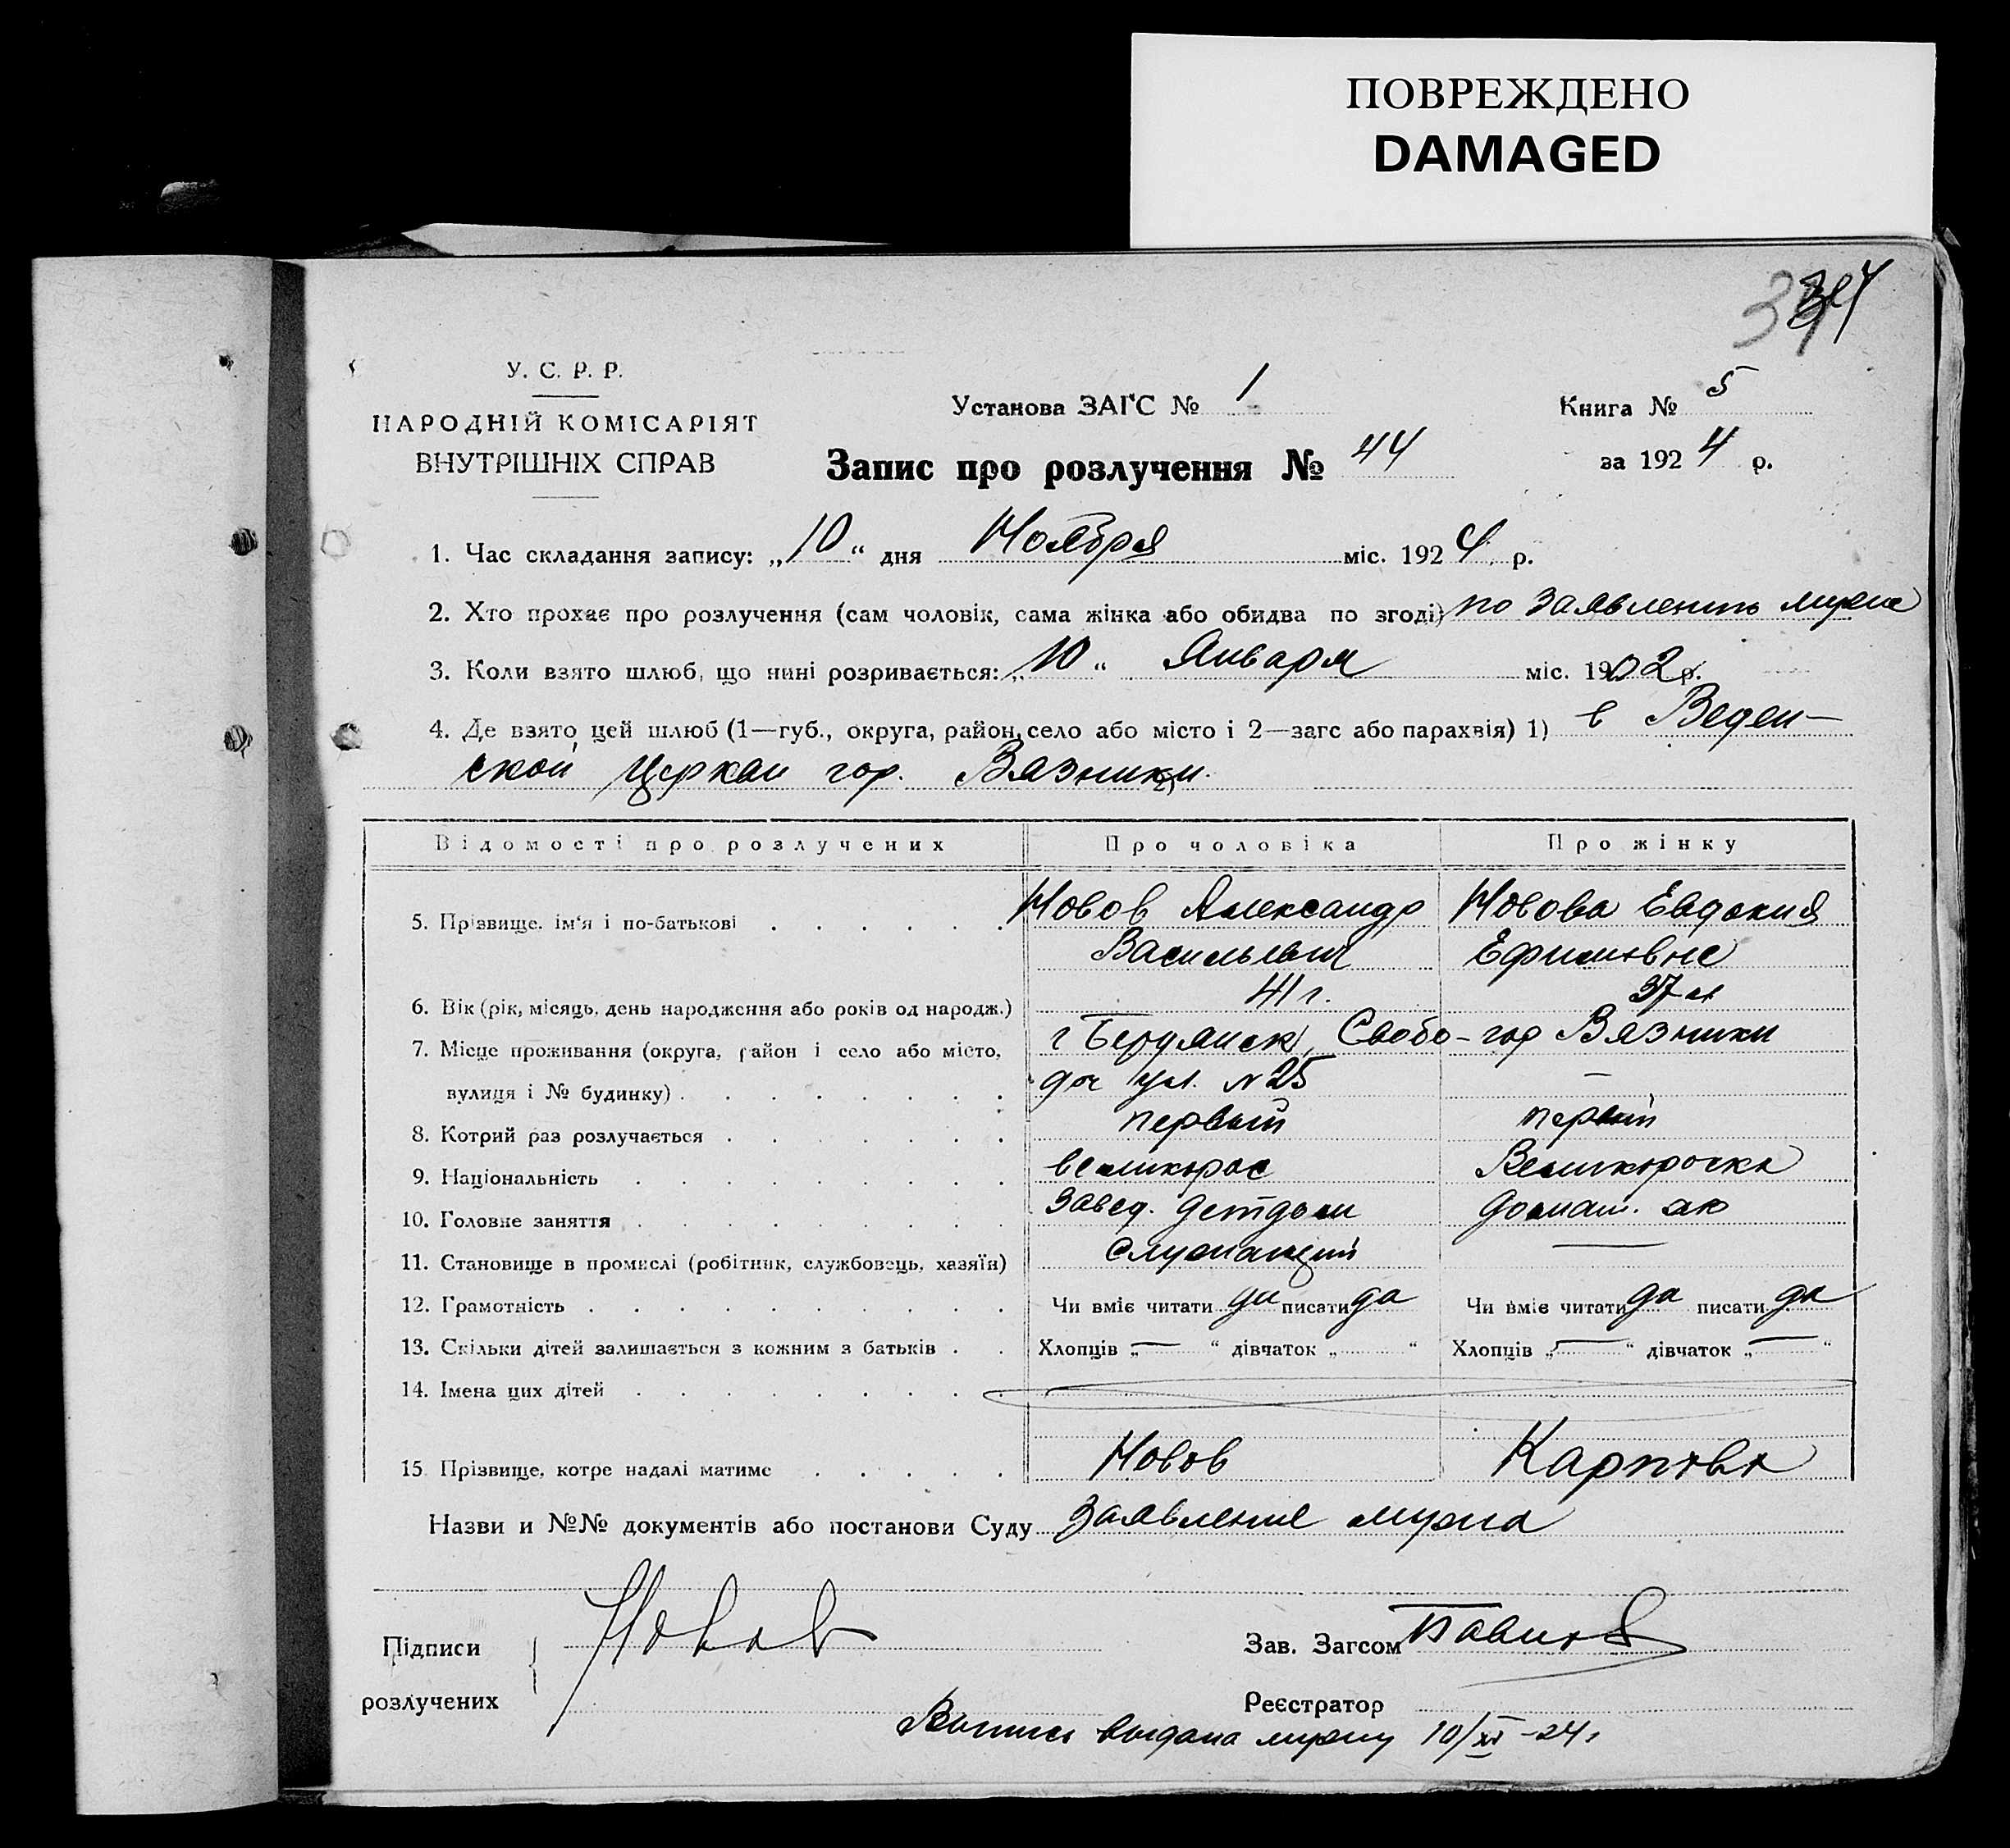 ПОВРЕЖДЕНО
DAMAGED
У. С. Р. Р.
НАРОДНІЙ КОМІСАРІЯТ
ВНУТРІШНІХ СПРАВ
Установа ЗАГС № 1
Книга № 5
Запис про розлучення № 44
за 1924 р.
1. Час складання запису: „10“ дня Ноября міс. 1924 р.
2. Хто прохає про розлучення (сам чоловік, сама жінка або обидва по згоді) по заявлению мужа
3. Коли взято шлюб, що нині розривається: „10“ Января міс. 1902 р.
4. Де взято цей шлюб (1—губ., округа, район, село або місто і 2—загс або парахвія) 1) в Веден-
ской церкви гор. Вязники. 2)
Відомості про розлучених Про чоловіка Про жінку
5. Прізвище, ім‘я і по-батькові Новов Александр Новова Евдокия
Васильевич Ефимовна
6. Вік (рік, місяць, день народження або років од народж.) 41 г. 37 л
7. Місце проживання (округа, район і село або місто, г Бердянск, Свобо- гор Вязники
вулиця і № будинку) ды ул. № 25 —
8. Котрий раз розлучається первый первый
9. Національність великорос Великороска
10. Головне заняття Завед. детдом домаш. хо
11. Становище в промислі (робітник, службовець, хазяїн) Служащий —
12. Грамотність Чи вміє читати да писати да Чи вміє читати да писати да
13. Скільки дітей залишається з кожним з батьків Хлопців „— “ дівчаток „ “ Хлопців „— “ дівчаток „— “
14. Імена цих дітей
15. Прізвище, котре надалі матиме Новов Карпова
Назви и №№ документів або постанови Суду Заявление мужа
Підписи Новов Зав. Загсом
розлучених Реєстратор
Выпись выдана мужу 10/XI-24г